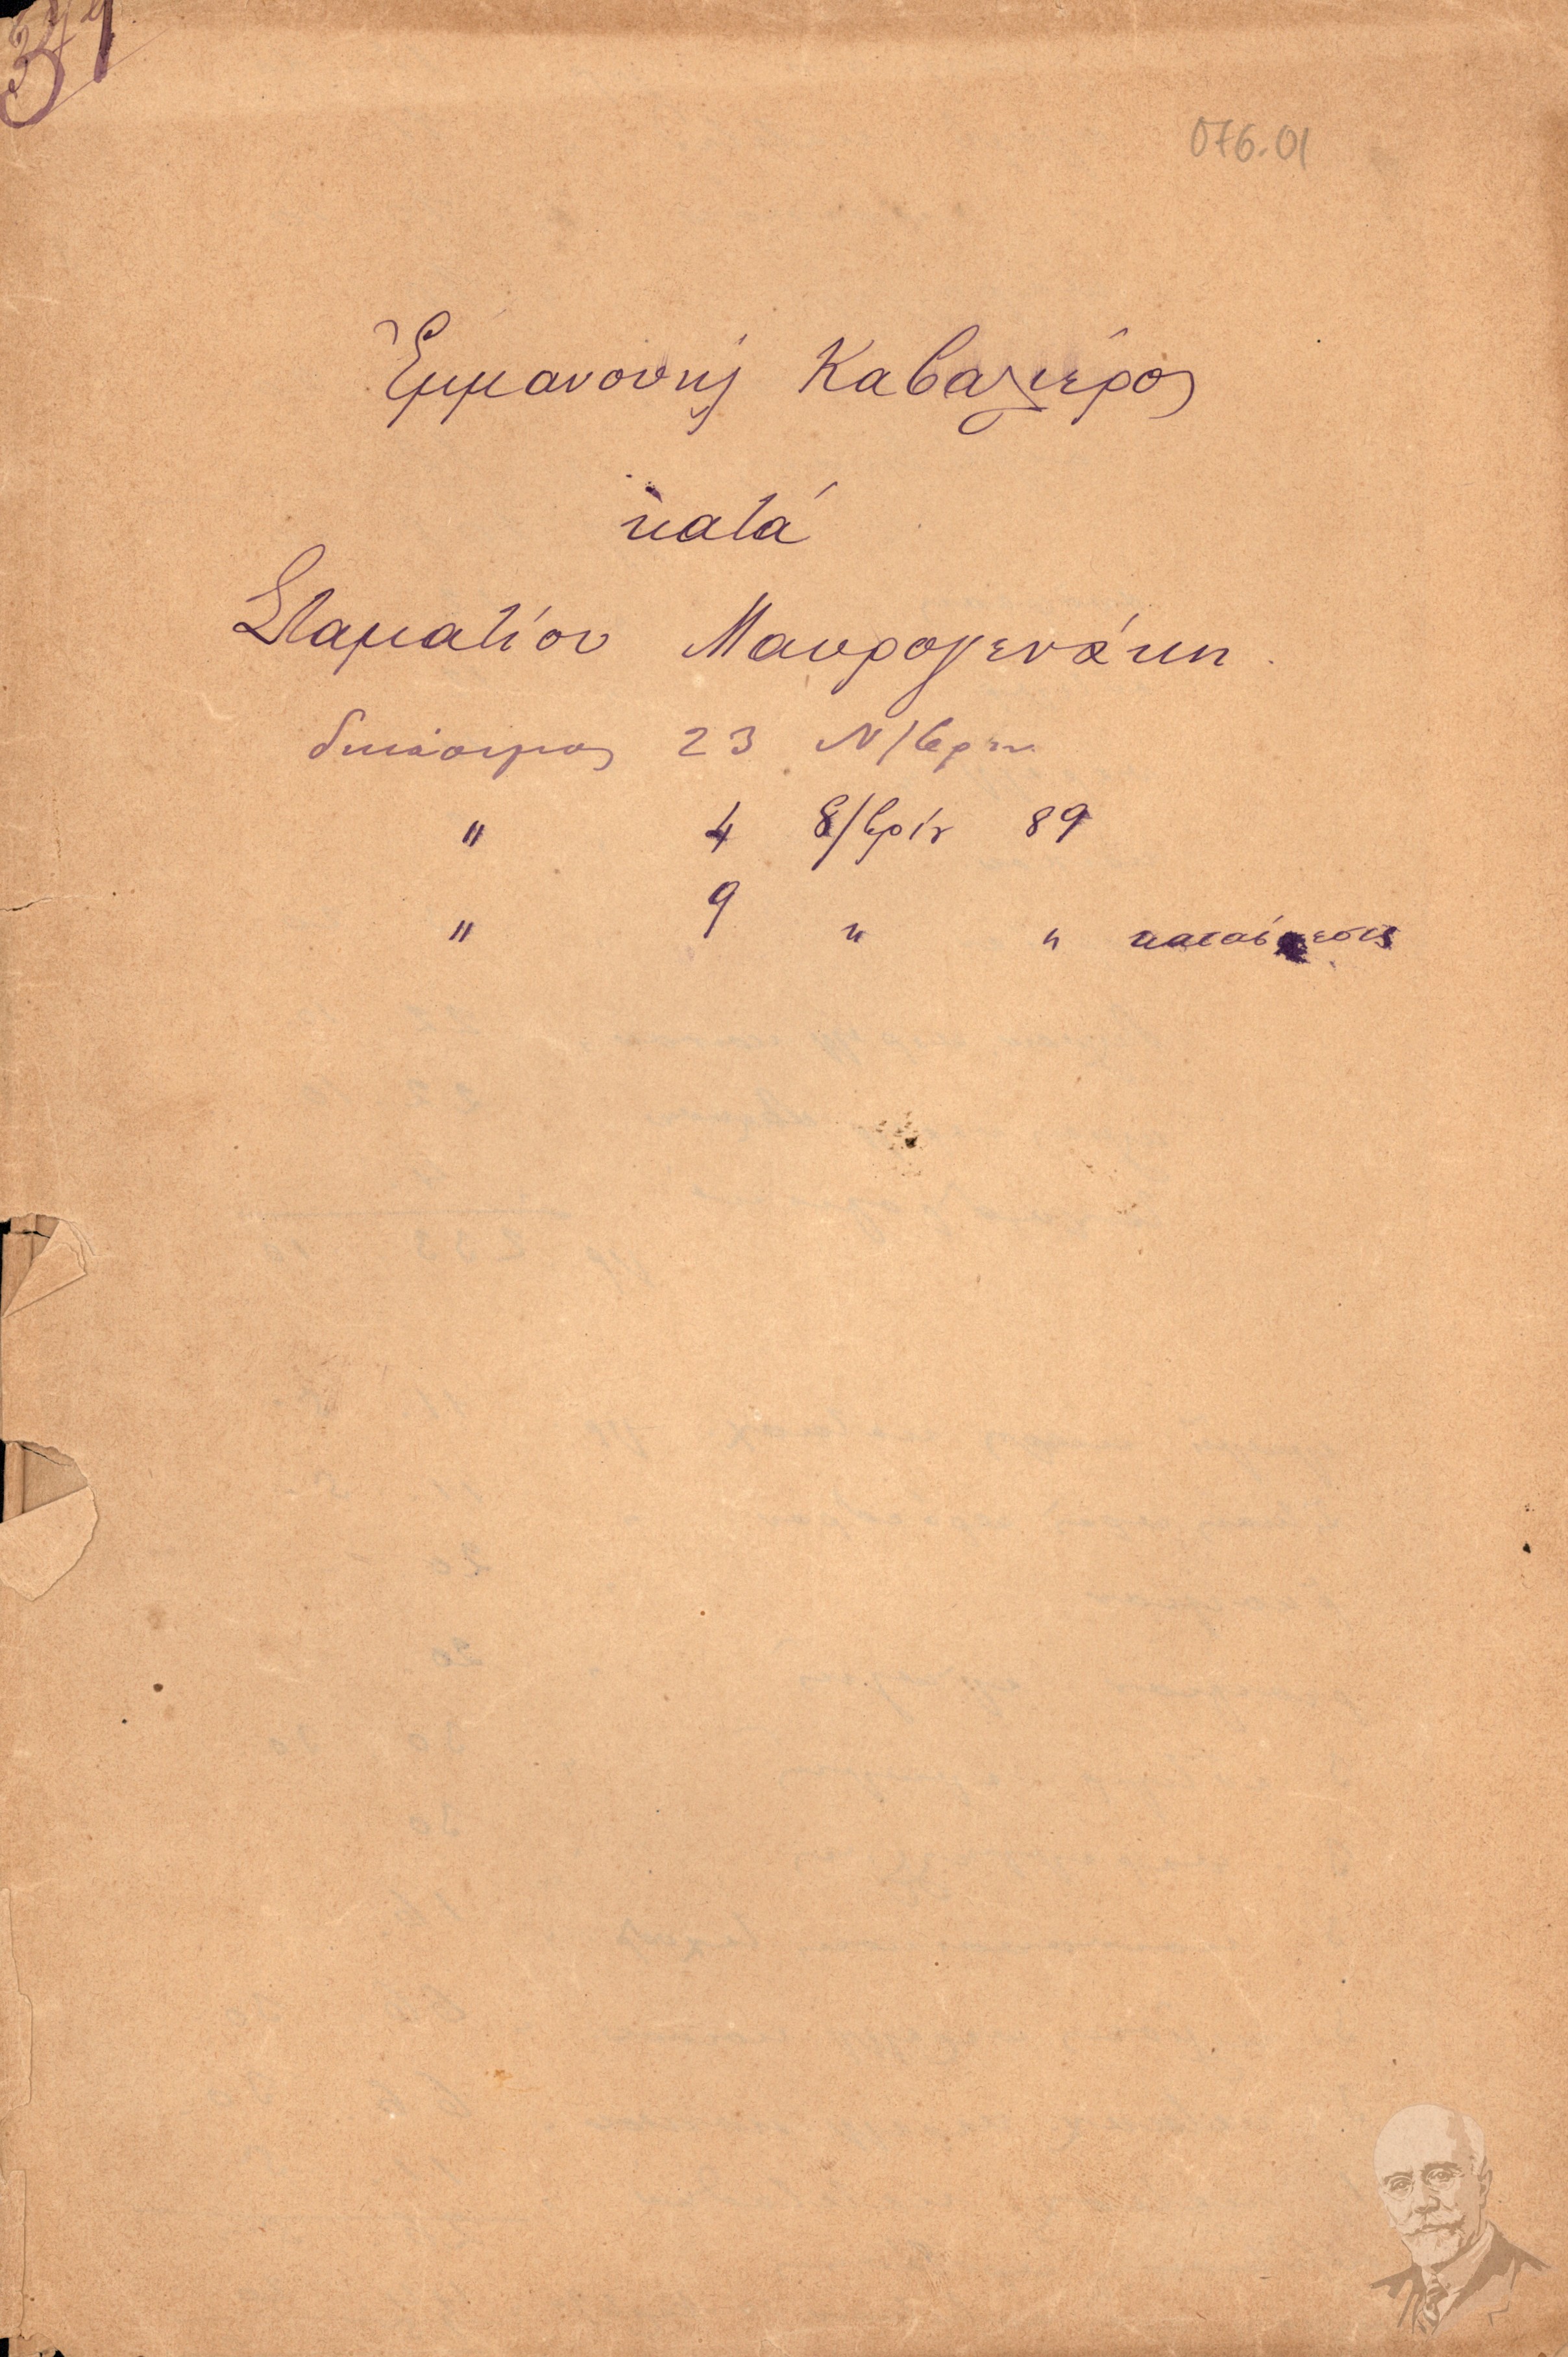 34
076.01
Ἐμμανουήλ Καβαλιέρος
κατά
Σταματίου Μαυρογενάκη
δικάσιμος 23 Ν/βρίου
" 4 8/βρίου 89
" 9 " "